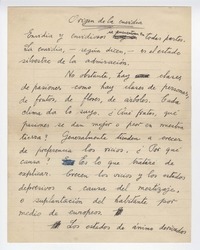 Origen de la envidia
Envidia y envidiosos se encuentran en todas partes.
La envidia, — según dicen, — es el estado
silvestre de la admiración.
No obstante, hay clases
de pasiones como hay clases de personas,
de frutos, de flores, de árboles. Cada
clima da lo suyo. ¿Qué frutos, qué
pasiones se dan mejor o peor en nuestra
tierra? Generalmente tienden a crecer
de preferencia los vicios. ¿Por qué
causa? Es lo que trataré de
explicar. Crecen los vicios y los estados
depresivos a causa del mestizaje,
o suplantación del habitante por
medio de europeos.
Los estados de ánimo derivados